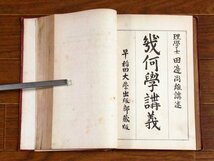 理學士 田邉尚雄講述
幾何學講義
早稲田大學出版部藏版